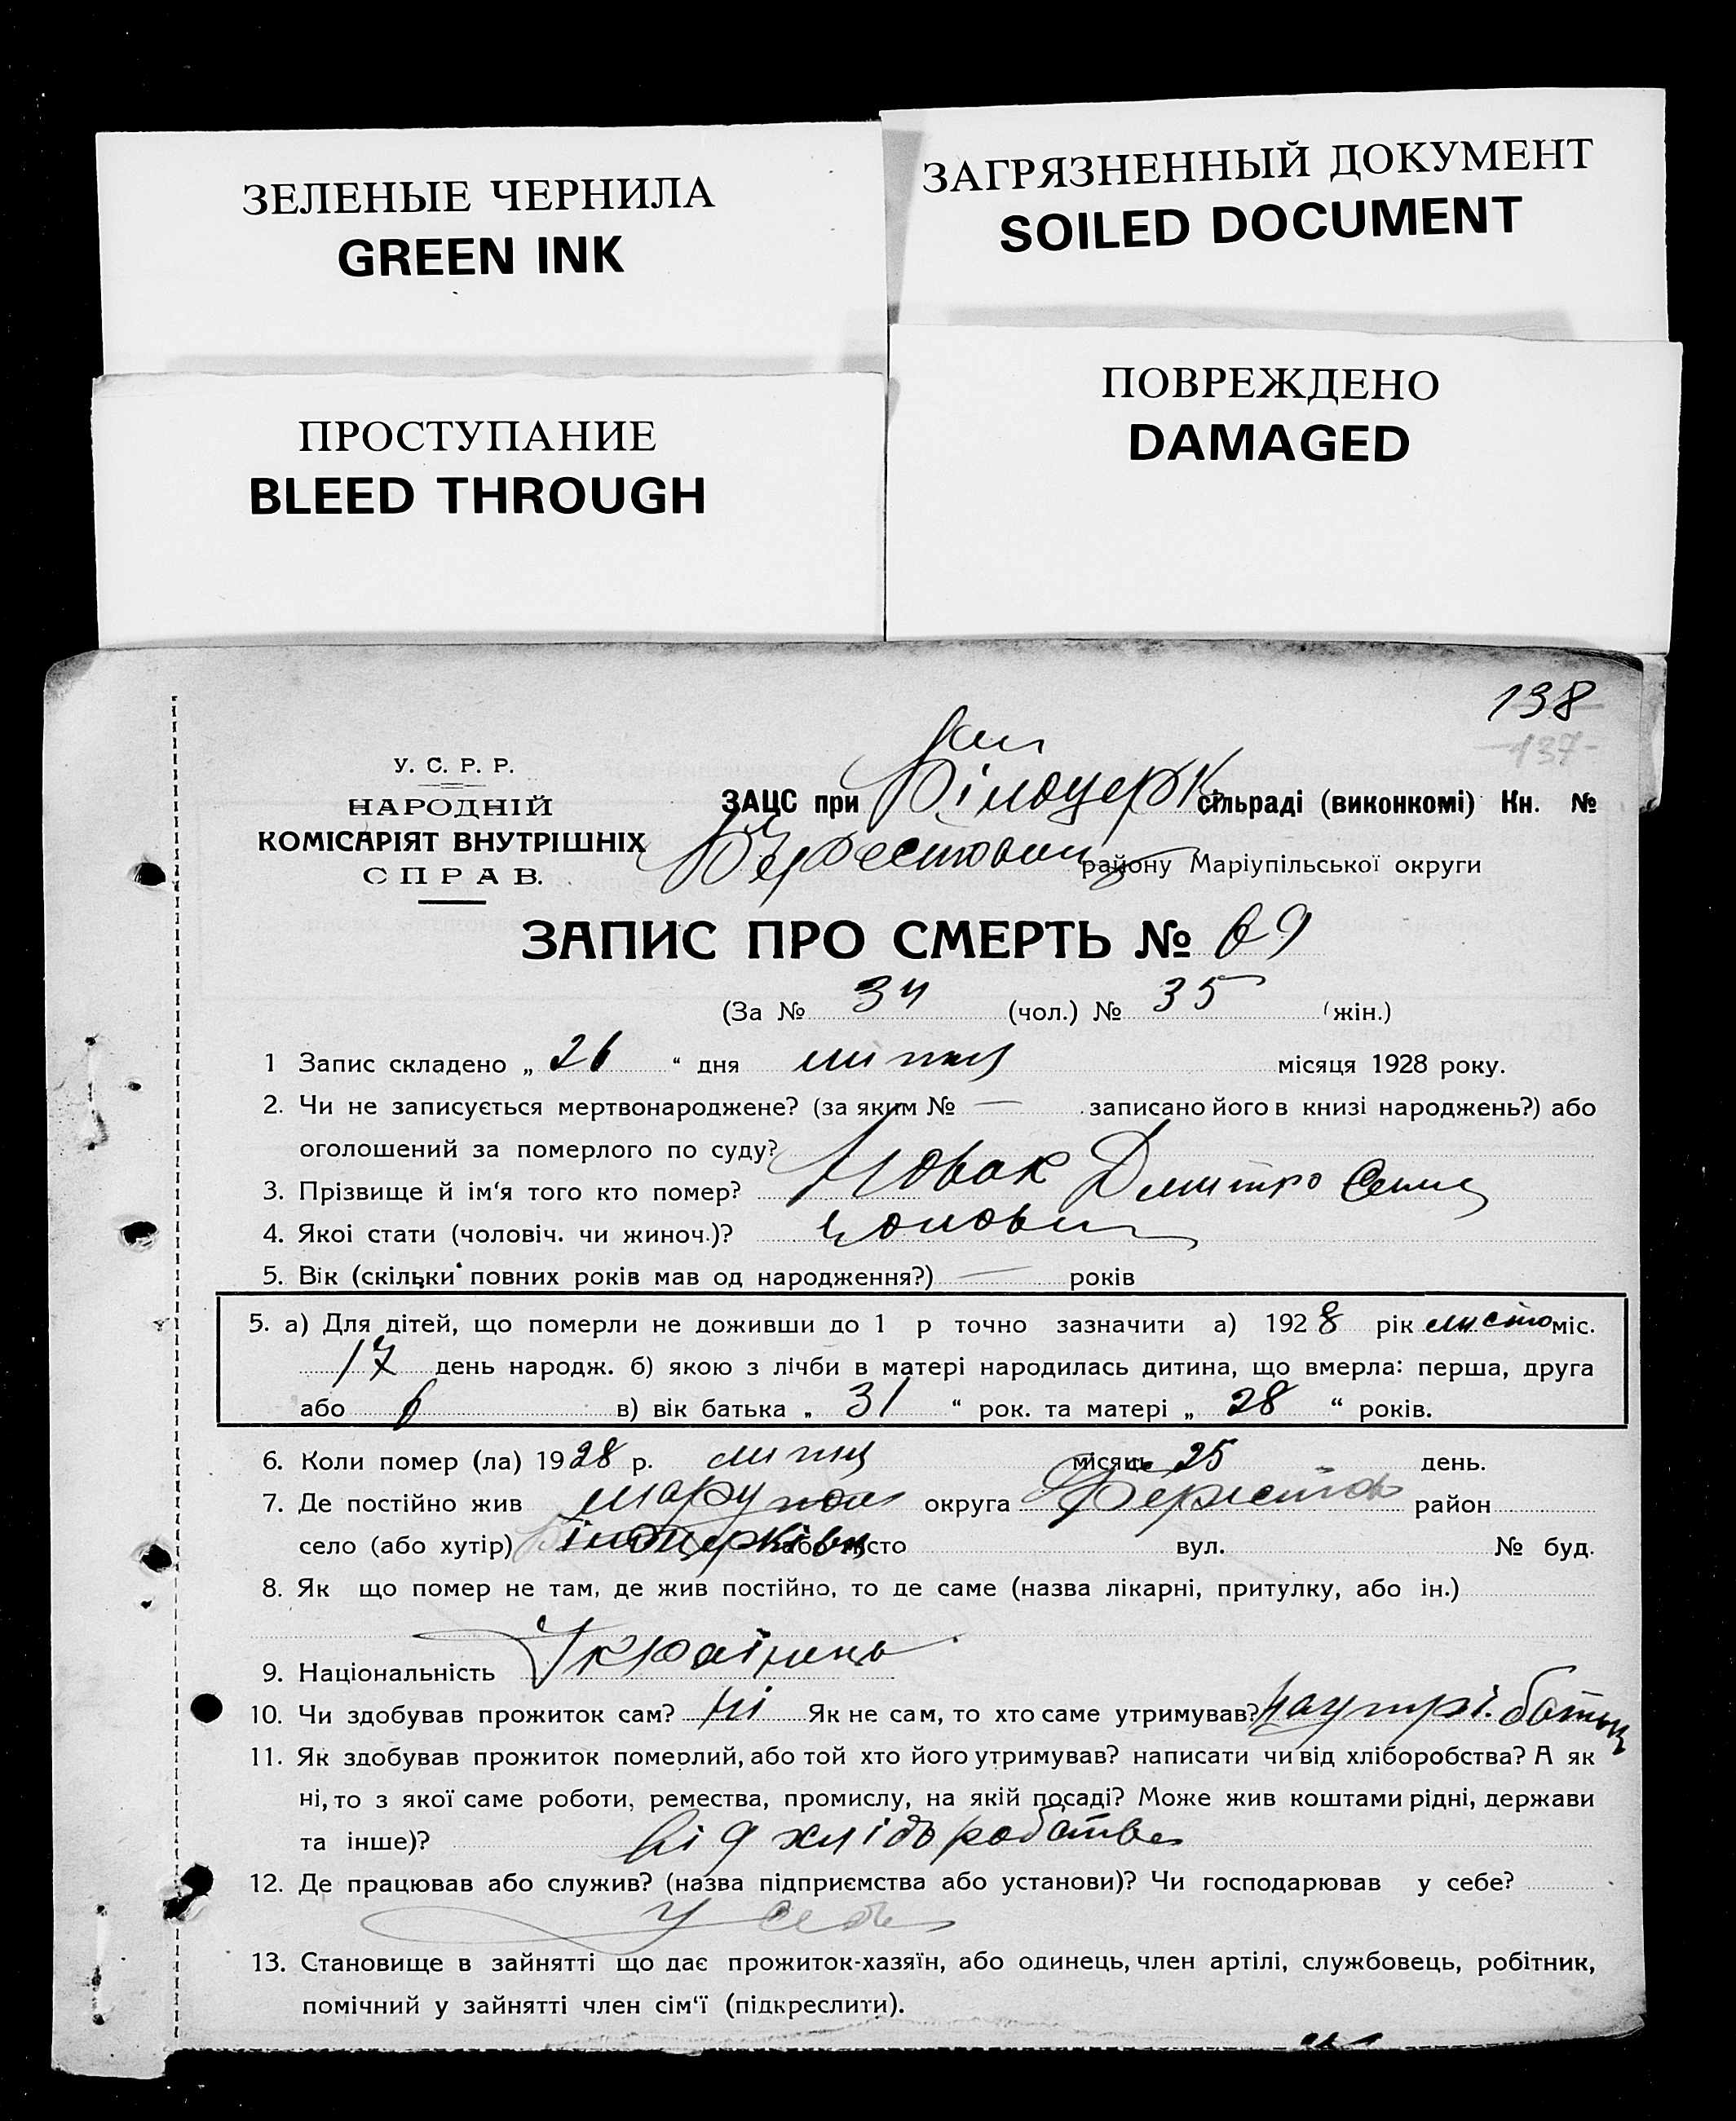 ЗЕЛЕНЫЕ ЧЕРНИЛА
GREEN INK
ЗАГРЯЗНЕННЫЙ ДОКУМЕНТ
SOILED DOCUMENT
ПРОСТУПАНИЕ
BLEED THROUGH
ПОВРЕЖДЕНО
DAMAGED
138
137
У. С. Р. Р.
НАРОДНІЙ
КОМІСАРІЯТ ВНУТРІШНІХ
СПРАВ.
ЗАЦС при Білоцерк сільраді (виконкомі) Кн. №
району Маріупільської округи
ЗАПИС ПРО СМЕРТЬ № 69
(За № 34 (чол.) № 35 (жін.)
1 Запис складено „ 26 “ дня липня місяця 1928 року.
2. Чи не записується мертвонароджене? (за яким № — записано його в книзі народжень?) або
оголошений за померлого по суду?
3. Прізвище й ім‘я того кто помер? Новак Дмитро Семе
4. Якоі стати (чоловіч. чи жиноч.)? чоловіч
5. Вік (скільки повних років мав од народження?) — років
5. а) Для дітей, що померли не доживши до 1 р точно зазначити а) 1928 рік листо міс.
17 день народж. б) якою з лічби в матері народилась дитина, що вмерла: перша, друга
або 6 в) вік батька „ 31 “ рок. та матері „ 28 “ років.
6. Коли помер (ла) 1928 р. липня місяць 25 день.
7. Де постійно жив округа Берестов район
село (або хутір) або місто вул. № буд.
8. Як що помер не там, де жив постійно, то де саме (назва лікарні, притулку, або ін.)
9. Національність Українець
10. Чи здобував прожиток сам? Ні Як не сам, то хто саме утримував? батьк
11. Як здобував прожиток померлий, або той хто його утримував? написати чи від хліборобства? А як
ні, то з якої саме роботи, ремества, промислу, на якій посаді? Може жив коштами рідні, держави
та інше)? від хліборобства
12. Де працював або служив? (назва підприємства або установи)? Чи господарював у себе?
У себе
13. Становище в зайнятті що дає прожиток-хазяїн, або одинець, член артілі, службовець, робітник,
помічний у зайнятті член сім‘ї (підкреслити).